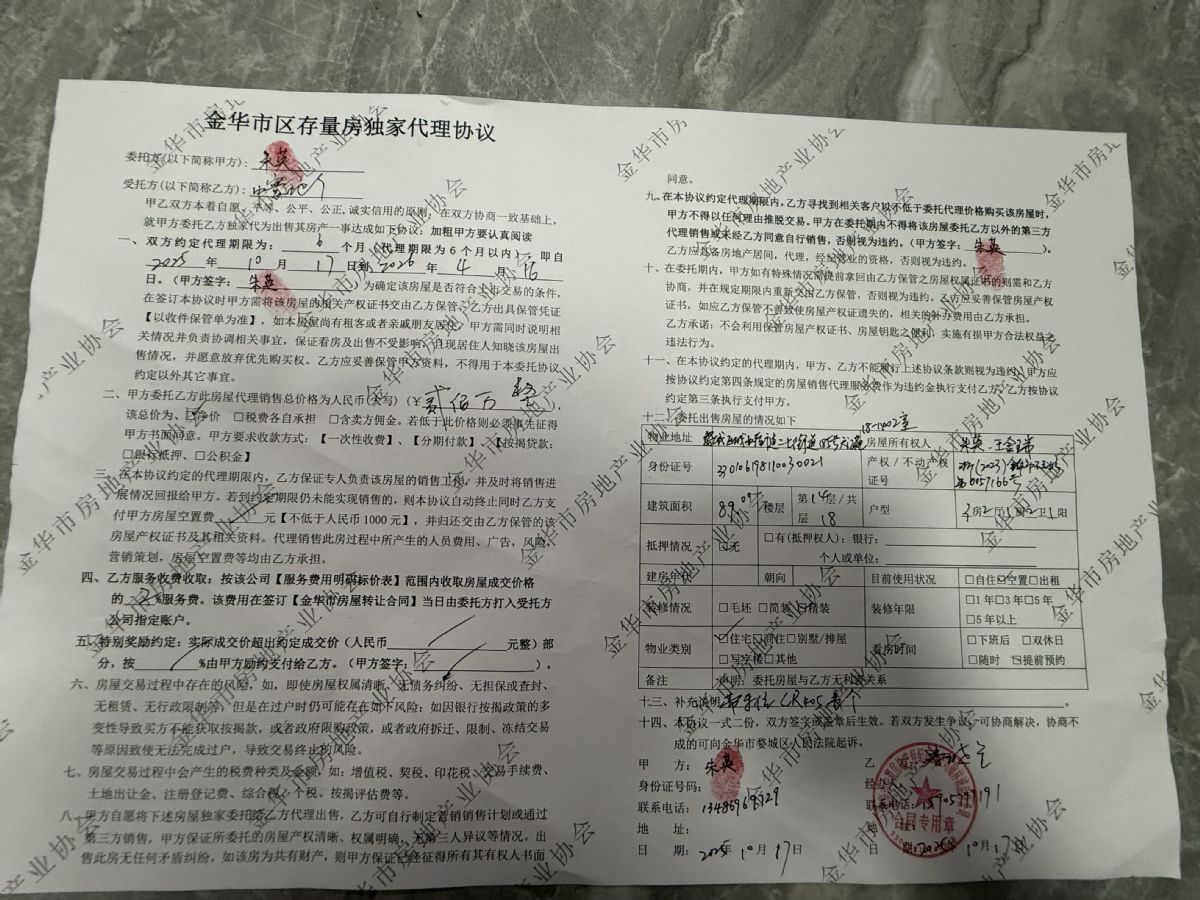 金华市区存量房独家代理协议
委托方(以下简称甲方)：朱英
受托方(以下简称乙方)：
甲乙双方本着自愿、平等、公平、公正,诚实信用的原则，在双方协商一致基础上，
就甲方委托乙方独家代为出售其房产一事达成如下协议：加粗甲方要认真阅读
一、双方约定代理期限为：6个月（代理期限为6个月以内），即自
2025年10月17日到2026年4月16
日。（甲方签字：朱英），为确定该房屋是否符合上市交易的条件，
在签订本协议时甲方需将该房屋的相关产权证书交由乙方保管，乙方出具保管凭证
【以收件保管单为准】，如本房屋尚有租客或者亲戚朋友居住，甲方需同时说明相
关情况并负责协调相关事宜，保证看房及出售不受影响，且现居住人知晓该房屋出
售情况，并愿意放弃优先购买权。乙方应妥善保管甲方资料，不得用于本委托协议
约定以外其它事宜。
二、甲方委托乙方此房屋代理销售总价格为人民币(大写)（￥贰佰万整），
该总价为、☑净价 □税费各自承担 □含卖方佣金。若低于此价格则必须事先征得
甲方书面同意。甲方要求收款方式：【一次性收费】、【分期付款】、【按揭贷款：
□银行抵押、□公积金】
三、在本协议约定的代理期限内，乙方保证专人负责该房屋的销售工作，并及时将销售进
展情况回报给甲方。若到约定期限仍未能实现销售的，则本协议自动终止同时乙方支
付甲方房屋空置费元【不低于人民币1000元】，并归还交由乙方保管的该
房屋产权证书及其相关资料。代理销售此房过程中所产生的人员费用、广告，风险，
营销策划，房屋空置费等均由乙方承担。
四、乙方服务收费收取：按该公司【服务费用明码标价表】范围内收取房屋成交价格
的%服务费。该费用在签订【金华市房屋转让合同】当日由委托方打入受托方
公司指定账户。
五、特别奖励约定：实际成交价超出约定成交价（人民币元整）部
分，按%由甲方励约支付给乙方。（甲方签字：）。
六、房屋交易过程中存在的风险，如，即使房屋权属清晰、无债务纠纷、无担保或查封、
无租赁、无行政限制等，但是在过户时仍可能存在如下风险：如因银行按揭政策的多
变性导致买方不能获取按揭款，或者政府限购政策，或者政府拆迁、限制、冻结交易
等原因致使无法完成过户，导致交易终止的风险。
七、房屋交易过程中会产生的税费种类及名额，如：增值税、契税、印花税、交易手续费、
土地出让金、注册登记费、综合税、个税，按揭评估费等。
八、甲方自愿将下述房屋独家委托乙方代理出售，乙方可自行制定营销销售计划或通过
第三方销售，甲方保证所委托的房屋产权清晰、权属明确、无第三人异议等情况。出
售此房无任何矛盾纠纷，如该房为共有财产，则甲方保证已经征得所有其有权人书面
同意。
九、在本协议约定代理期限内，乙方寻找到相关客户以不低于委托代理价格购买该房屋时，
甲方不得以任何理由推脱交易。甲方在委托期内不得将该房屋委托乙方以外的第三方
代理销售或未经乙方同意自行销售，否则视为违约。（甲方签字：朱英）。
乙方应具备房地产居间，代理，经纪营业的资格，否则视为违约。
十、在委托期内，甲方如有特殊情况需提前拿回由乙方保管之房屋权属证书的则需和乙方
协商，并在规定期限内重新交由乙方保管，否则视为违约。乙方应妥善保管房屋产权
证书，如应乙方保管不善致使房屋产权证遗失的，相关的补办费用由乙方承担。
乙方承诺：不会利用保管房屋产权证书、房屋钥匙之便利，实施有损甲方合法权益之
违法行为。
十一、在本协议约定的代理期内，甲方、乙方不能履行上述协议条款则视为违约，甲方应
按协议约定第四条规定的房屋销售代理服务费作为违约金执行支付乙方，乙方按协议
约定第三条执行支付甲方。
十二、委托出售房屋的情况如下
18-1402室
物业地址 房屋所有权人 朱英、王金瑞
身份证号 330106198110030021 产权/不动产权证号 浙(2023)第0057166号
建筑面积 89.09 楼层 第14层/共18层 户型 3房2厅1厨2卫1阳
抵押情况 ☑无 □有(抵押权人)：银行：
个人或单位：
建房年代 朝向 目前使用状况 □自住☑空置□出租
装修情况 □毛坯 □简装 ☑精装 装修年限 □1年□3年□5年
□5年以上
物业类别 ☑住宅□商住□别墅/排屋 看房时间 □下班后 □双休日
□写字楼□其他 □随时 ☑提前预约
备注 声明：委托房屋与乙方无利害关系
十三、补充说明：
十四、本协议一式二份，双方签字或盖章后生效。若双方发生争议，可协商解决，协商不
成的可向金华市婺城区人民法院起诉。
甲 方：朱英 乙 方：
身份证号码： 经办
联系电话：13486969729 联系电话：
地 址： 地 址：
日 期：2025年10月17日 日 期：2025年10月17日
合同专用章
金华市房地产业协会